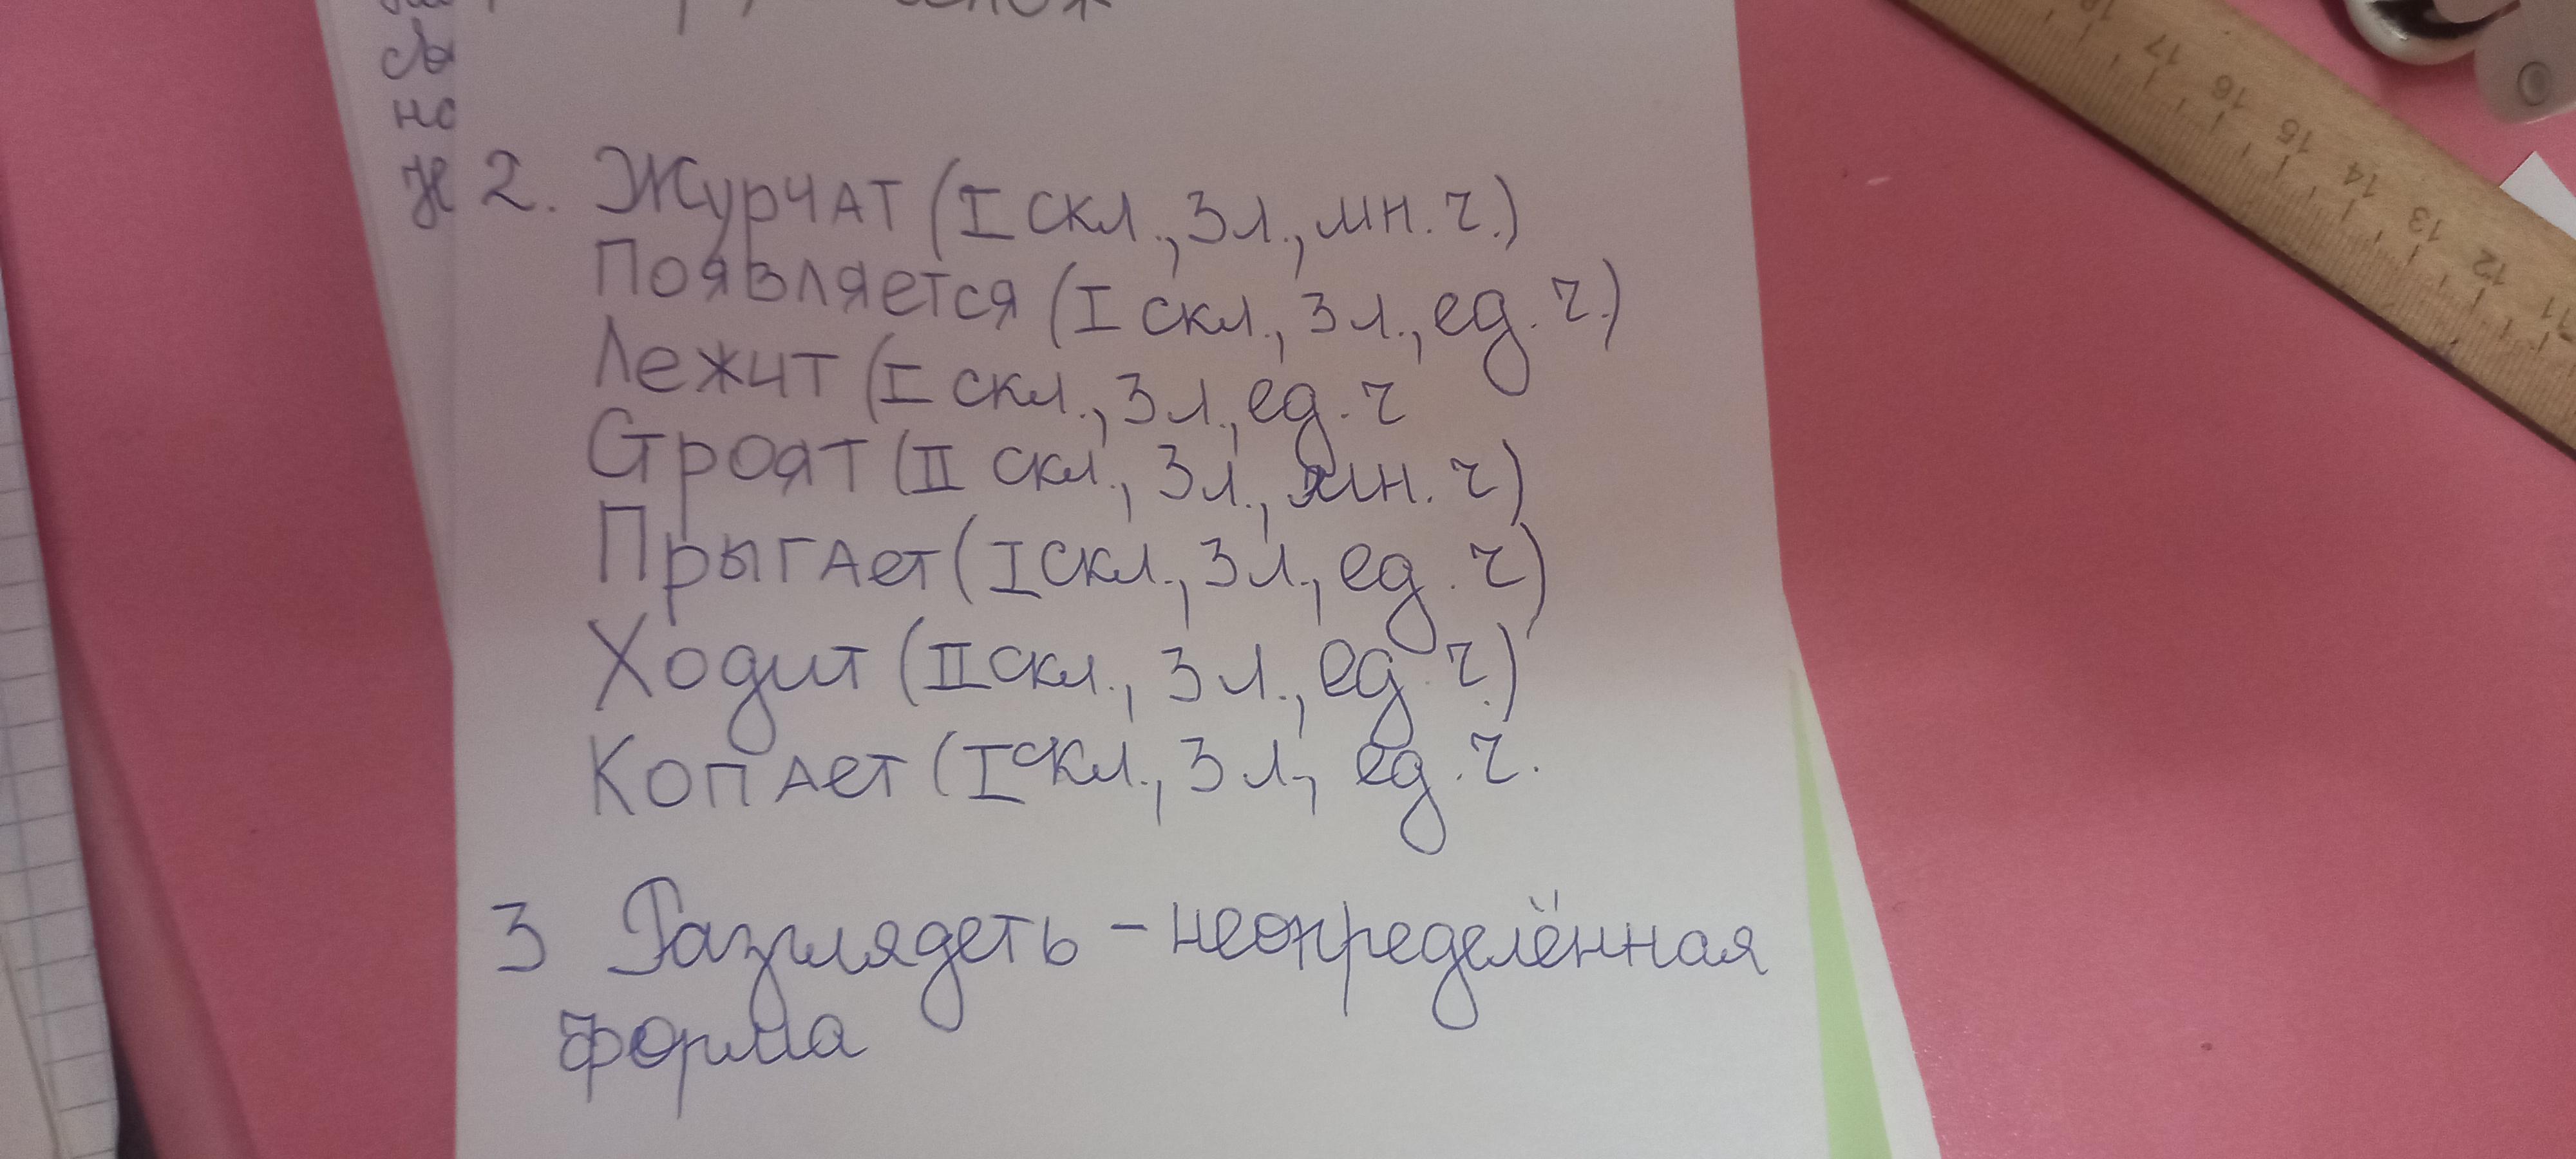 сы
но
же 2. Журчат (I скл., 3 л., мн. ч.)
Появляется (I скл., 3 л., ед. ч.)
Лежит (I скл., 3 л., ед. ч
Строят (II скл., 3 л., мн. ч)
Прыгает (I скл., 3 л., ед. ч)
Ходит (II скл., 3 л., ед. ч.)
Копает (I скл., 3 л, ед. ч.
3 Разглядеть - неопределённая
форма
18 17 16 15 14 13 12 11